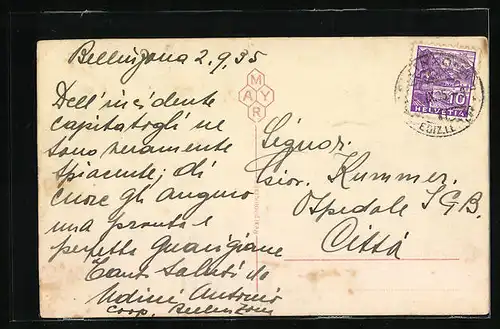 Bellinzona 2.9.35
Dell'incidente
capitatogli ne
sono veramente
spiacente; di
cuore gli auguro
una pronta e
perfetta guarigione
Tanti saluti da
Udini Antonio
Coop, Bellinzona
M
A Y
R
Signor.
Kummer.
Ospedale S G B.
Città
10
HELVETIA